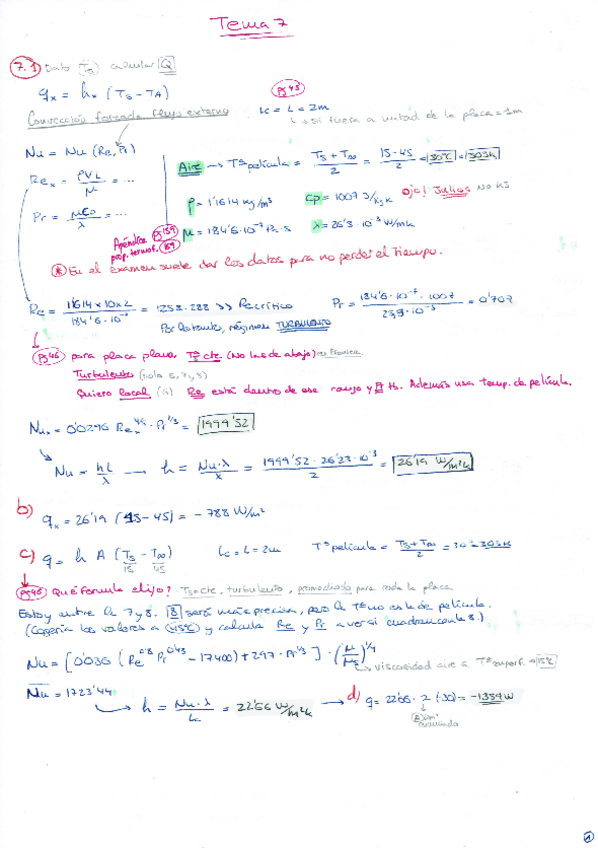 Tema 7
7.1) Dato Ts calcular Q
qx = hx (Ts - TA)
Pg 45
Convección forzada flujo externo
Lc = L = 2m
↳ si fuera a mitad de la placa = 1m
Nu = Nu (Re, Pr)
Aire → Tª película = (Ts + T∞)/2 = (15 - 45)/2 = 30ºC = 303K
Rex = ρVL/μ = ...
ρ = 1'1614 kg/m³ Cp = 1007 J/kgK ojo! Julios NO KJ
Pr = μCp/λ = ...
μ = 184'6·10⁻⁷ Pa·s λ = 26'3·10⁻³ W/mK
Apéndice prop. termof. Pg 159
* En el examen suele dar los datos para no perder el tiempo.
Re = (1'1614 x 10 x 2)/(184'6·10⁻⁷) = 1258.288 >> Recrítico Pr = (184'6·10⁻⁷ · 1007)/(26'3·10⁻³) = 0'707
Por lo tanto, régimen TURBULENTO
Pg 46 para placa plana Ts cte (No las de abajo)
Turbulento (solo 6, 7, 8)
Quiero local (6) Re está dentro de ese rango y Pr tb. Además usa temp. de película.
Nux = 0'0296 Rex^4/5 · Pr^1/3 = 1999'52
Nu = hL/λ → h = Nu·λ/x = (1999'52 · 26'23·10⁻³)/2 = 26'19 W/m²K
b) qx = 26'19 (15-45) = -788 W/m²
c) q = h A (Ts - T∞) Lc = L = 2m Tª película = (Ts + T∞)/2 = 30 = 303K
15 45
Pg 46 Qué formula elijo? Ts = cte, turbulento, promediado para toda la placa
Estoy entre la 7 y 8. 8 será más precisa, pero la Tª no es la de película.
(Cogería los valores a 45ºC y calcula Re y Pr a ver si cuadran con la 8.)
Nu = [0'036 (Re^0'8 Pr^0'43 - 17400) + 297 · Pr^1/3] · (μ/μs)^1/4
↳ viscosidad aire a Tª superf. = 15ºC
Nu = 1723'44
→ h = Nu·λ/Lc = 22'66 W/m²K → d) q = 22'66 · 2 (-30) = -1359 W
1